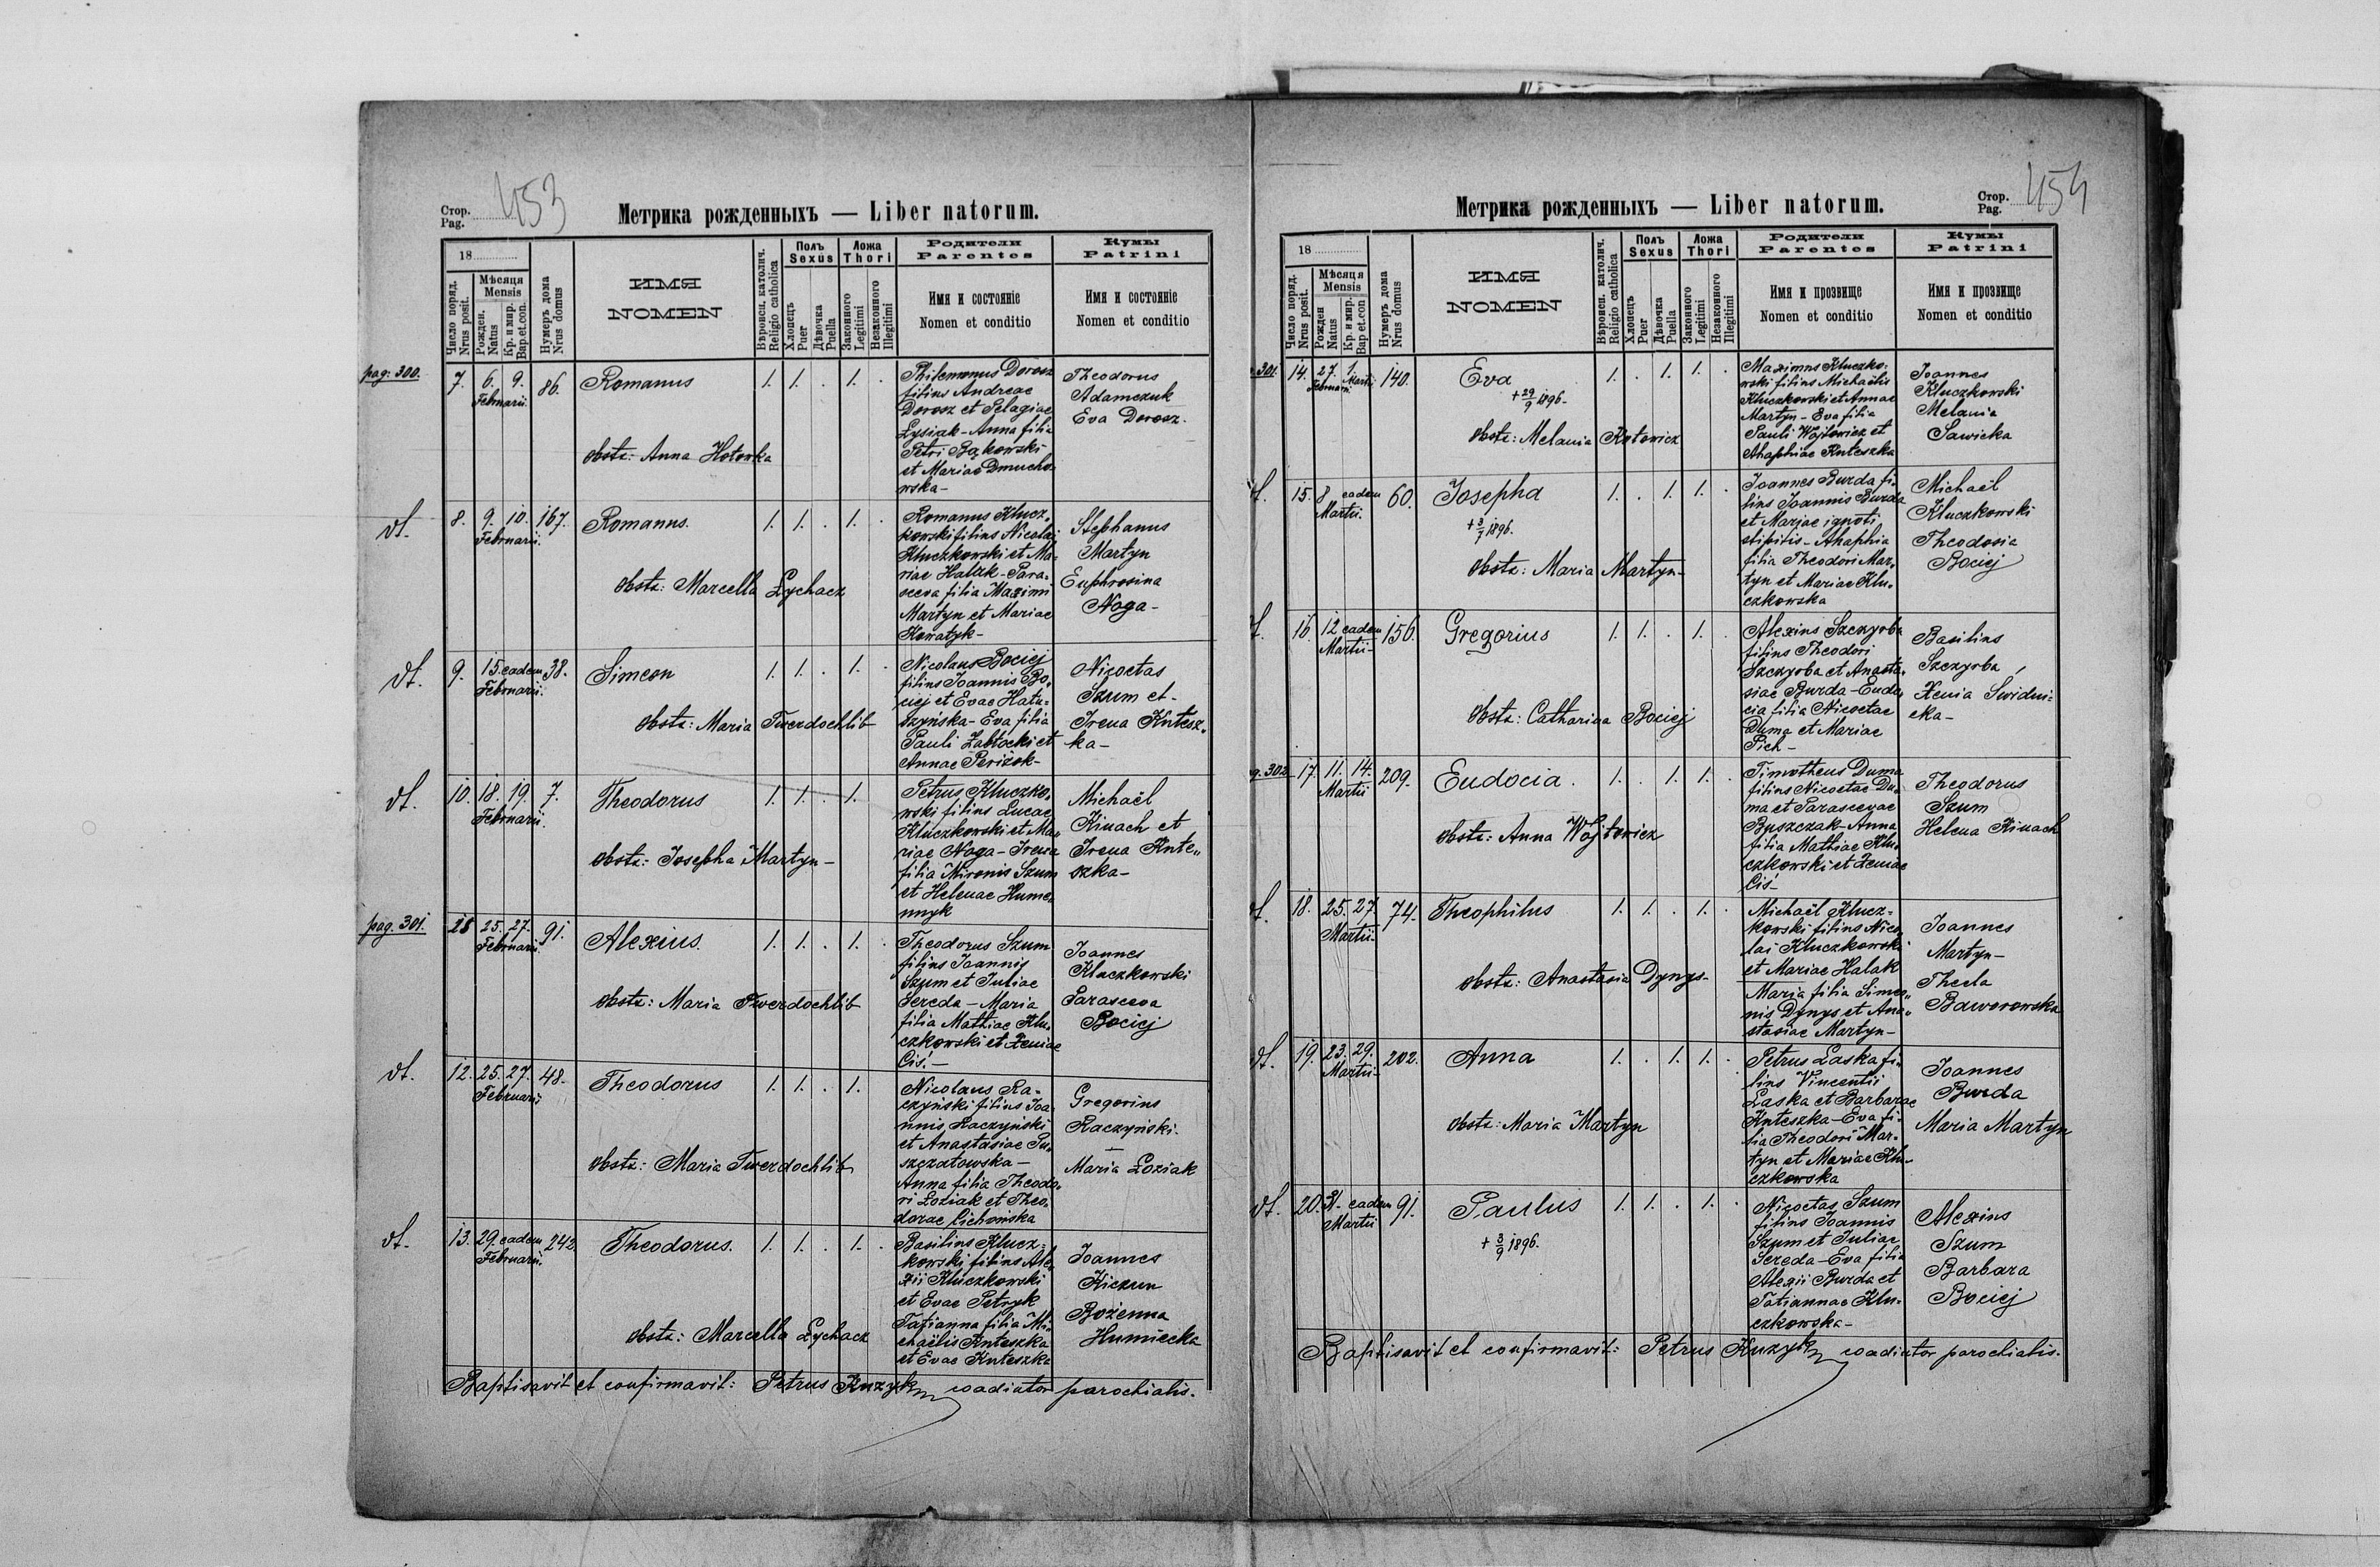 453
Стор.
Pag.
Метрика рожденныхъ — Liber natorum.
18
Число поряд.
Nrus posit.
Мѣсяця
Mensis
Рожден.
Natus
Кр. и мир.
Bap. et con.
Нумеръ дома
Nrus domus
ИМЯ
NOMEN
Вѣроисп. католич.
Religio catholica
Полъ
Sexus
Хлопецъ
Puer
Дѣвочка
Puella
Ложа
Thori
Законного
Legitimi
Незаконного
Illegitimi
Родители
Parentes
Имя и состояніе
Nomen et conditio
Кумы
Patrini
Имя и состояніе
Nomen et conditio
pag: 300.
7. 6. 9. 86. Romanus 1. 1. . 1. .
Februarii.
obstz: Anna Hotowka
Philemonus Dorosz
filius Andreae
Dorosz et Pelagiae
Łysiak - Anna filia
Petri Bąkowski
et Mariae Dmucho
wska -
Theodorus
Adamczuk
Eva Dorosz.
dt.
8. 9. 10. 167. Romanus. 1. 1. . 1. .
Februarii.
obstz: Marcella Łychacz
Romanus Klucz„
kowski filius Nicolai
Kluczkowski et Ma„
riae Halak - Para„
sceva filia Maximi
Martyn et Mariae
Kowatyk -
Stephanus
Martyn
Euphrosina
Noga -
dt.
9. 15. eadem 38. Simeon 1. 1. . 1. .
Februarii.
obstz: Maria Twerdochlib
Nicolaus Bociej
filius Joannis Bo„
ciej et Evae Hatu=
szyńska - Eva filia
Pauli Zabłocki et
Annae Perizok -
Nicoetas
Szum et -
Irena Kntesz„
ka -
dt.
10. 18. 19. 7. Theodorus 1. 1. . 1.
Februarii.
obstz: Josepha Martyn -
Petrus Kluczko„
wski filius Lucae
Kluczkowski et Ma„
riae Noga - Irena
filia Mironis Szum
et Helenae Hume„
nnyk
Michaël
Kinach et
Irena Knte„
szka -
pag. 301.
25. 27. 91. Alexius. 1. 1. . 1. .
Februarii
obstz: Maria Twerdochlib
Theodorus Szum
filius Joannis
Szum et Juliae
Sereda - Maria
filia Mathiae Klu„
czkowski et Xeniae
Ciś. -
Joannes
Kluczkowski
Parasceva
Bociej
dt.
12. 25. 27. 48. Theodorus 1. 1. . 1.
Februarii
obstz: Maria Twerdochlib
Nicolaus Ra-
czyński filius Joa-
nnis Raczyński
et Anastasiae Pu„
szczatowska -
Anna filia Theodo„
ri Łoziak et Theo„
dorae Cichońska
Gregorius
Raczyński.
—
Maria Łoziak
dt.
13. 29. eadem 242. Theodorus. 1. 1. . 1. .
Februarii.
obstz: Marcella Łychacz
Basilius Klucz=
kowski filius Ale„
xii Kluczkowski
et Evae Petryk
Tatianna filia Mi„
chaëlis Knteszka
et Evae Knteszka
Joannes
Kiczun
Bożenna
Humiecka
Baptisavit et confirmavit: Petrus Kuzyk coadiutor parochialis.
454
Стор.
Pag.
Метрика рожденныхъ — Liber natorum.
18
Число поряд.
Nrus posit.
Мѣсяця
Mensis
Рожден
Natus
Кр. и мир.
Bap et con.
Нумеръ дома
Nrus domus
ИМЯ
NOMEN
Вѣроисп. католич.
Religio catholica
Полъ
Sexus
Хлопецъ
Puer
Дѣвочка
Puella
Ложа
Thori
Законного
Legitimi
Незаконного
Illegitimi
Родители
Parentes
Имя и прозвище
Nomen et conditio
Кумы
Patrini
Имя и прозвище
Nomen et conditio
301.
14. 27. 1. 140. Eva 1. . 1. 1. .
Februarii. Martii
+ 29/9 1896 -
obstz: Melania Kotowicz
Maximus Kluczko„
wski filius Michaëlis
Kluczkowski et Annae
Martyn - Eva filia
Pauli Wójtowicz et
Ahaphiae Knteszka
Joannes
Kluczkowski
Melania
Sawicka
15. 8 eadem 60. Josepha 1. . 1. 1. .
Martii.
+ 3/7 1896.
obstz: Maria Martyn -
Joannes Burda fi-
lius Joannis Burda
et Mariae ignoti
stipitis - Ahaphia
filia Theodori Mar„
tyn et Mariae Klu„
czkowska
Michaël
Kluczkowski
Theodosia
Bociej
16. 12 eadem 156. Gregorius 1. 1. . 1. .
Martii -
obstz: Catharina Bociej
Alexius Szczyrba
filius Theodori
Szczyrba et Anasta„
siae Burda - Eudo„
cia filia Nicoetae
Duma et Mariae
Pich -
Basilius
Szczyrba,
Xenia Swidni-
cka -
302
17. 11. 14. 209. Eudocia. 1. . 1. 1. .
Martii
obstz: Anna Wójtowicz
Timotheus Duma
filius Nicoetae Du„
ma et Parascevae
Buszczak - Anna
filia Mathiae Klu„
czkowski et Xeniae
Ciś -
Theodorus
Szum
Helena Kinach
18. 25. 27. 74. Theophilus 1. 1. . 1. .
Martii -
obstz: Anastasia Dynys -
Michaël Klucz=
kowski filius Nico„
lai Kluczkowski
et Mariae Halak
Maria filia Simeo„
nis Dynys et Ana„
stasiae Martyn -
Joannes
Martyn -
Thecla
Baworowska
dt.
19. 23. 29. 202. Anna 1. . 1. 1. .
Martii -
obstz: Maria Martyn
Petrus Laska fi-
lius Vincentii
Laska et Barbarae
Knteszka - Eva fi-
lia Theodori Mar-
tyn et Mariae Klu-
czkowska
Joannes
Burda
Maria Martyn
dt.
20. 31. eadem 91. Paulus 1. 1. . 1. .
Martii
+ 3/9 1896.
Nicoetas Szum
filius Joannis
Szum et Juliae
Sereda - Eva filia
Alexii Burda et
Tatiannae Klu-
czkowska -
Alexius
Szum
Barbara
Bociej
Baptisavit et confirmavit: Petrus Kuzyk coadiutor parochialis.